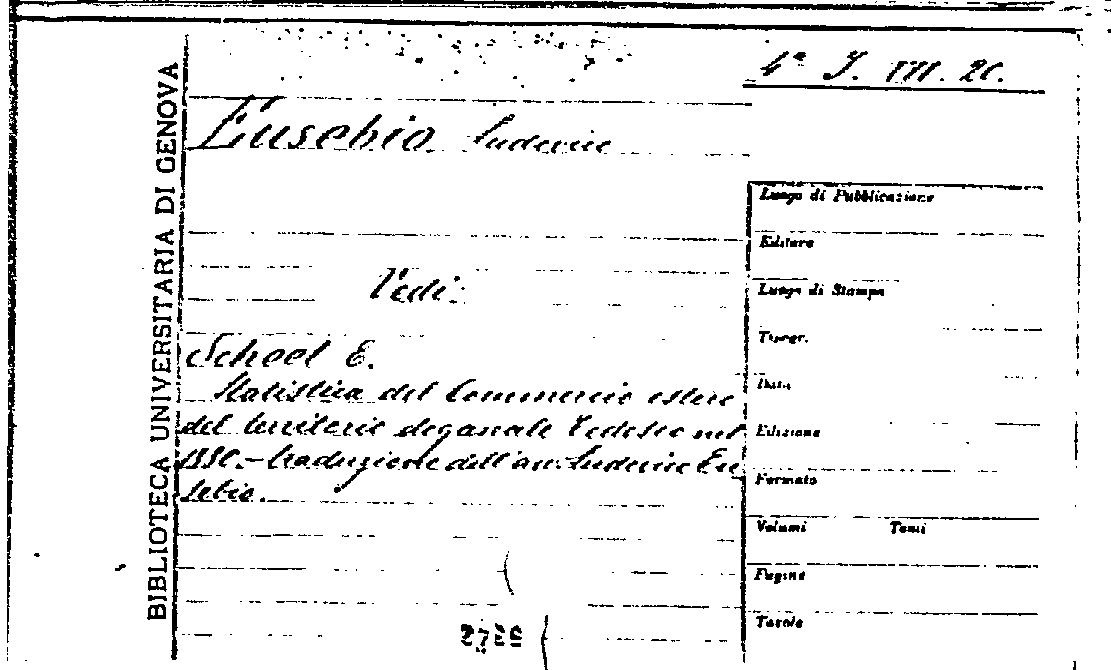 BIBLIOTECA UNIVERSITARIA DI GENOVA
Eusebio Ludovico
Vedi:
Scheel E.
Statistica del Commercio estero
del territorio doganale Tedesco nel
traduzione dell'avv. Ludovico Eu
sebio.
Luogo di Pubblicazione
Editore
Luogo di Stampa
Tipogr.
Data
Edizione
Formato
Volumi Tomi
Pagine
Tavole